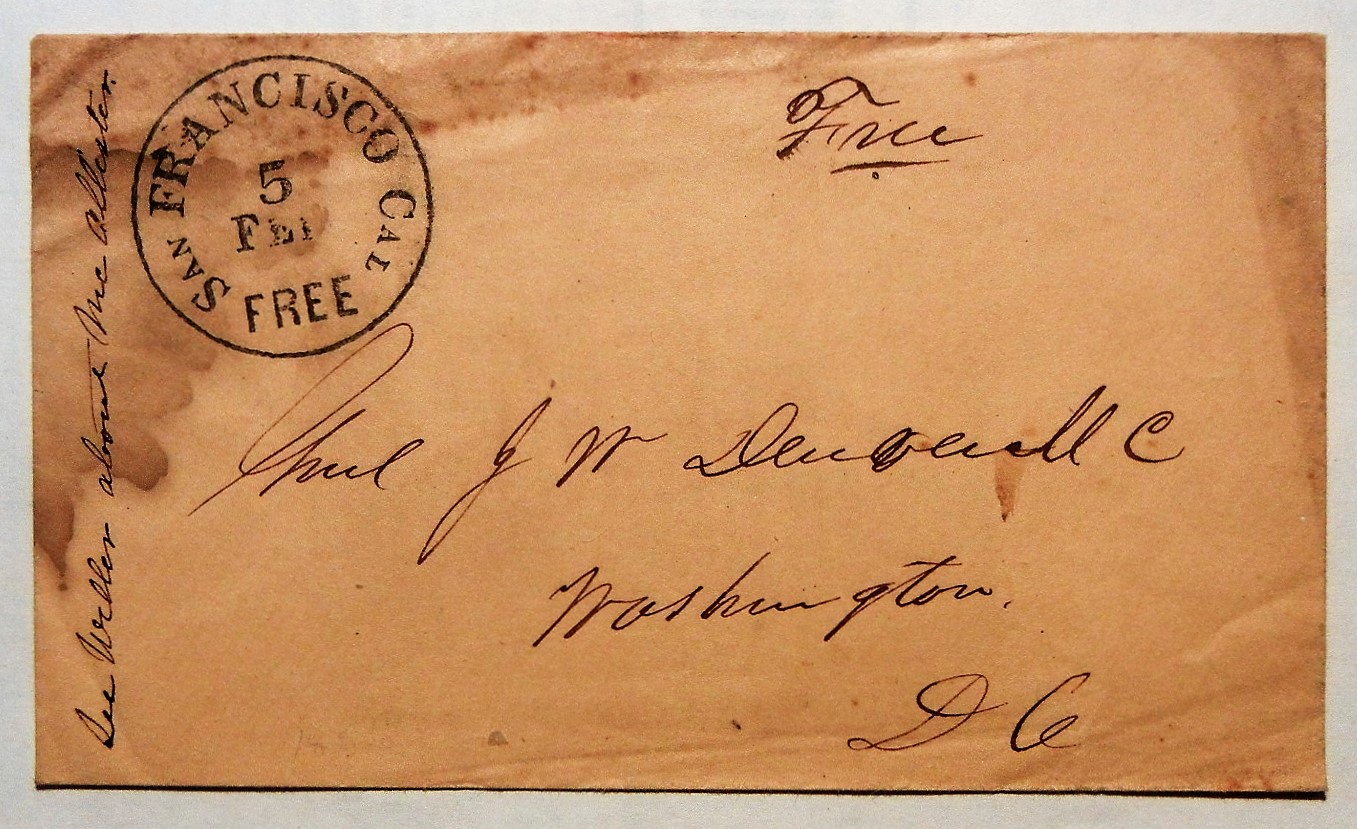 SAN FRANCISCO CAL
5
FEB
FREE
Free
Genl J W Denver M C
Washington.
D C
See Weller about McAllester.